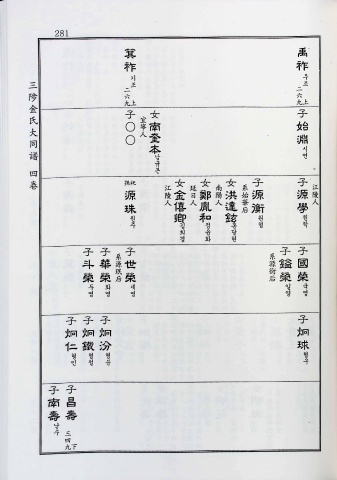 281
三陟金氏大同譜 四卷
禹祚 우조 二六九上
箕祚 기조 二六九上
子 始淵 시연
女 南奎本 남규본 宜寧人
子 〇〇
子 源學 원학 江陵人
子 源衡 원형 系始華后
女 洪達鉉 홍달현 南陽人
女 鄭胤和 정윤화 延日人
女 金僖卿 김희경 江陵人
源珠 원주
子 國榮 국영
子 鎰榮 일영 系源衡后
子 世榮 세영 系源珉后
子 華榮 화영
子 斗榮 두영
子 炯球 형구
子 炯汾 형분
子 炯鐵 형철
子 炯仁 형인
子 昌壽 三四九下
子 南壽 남수